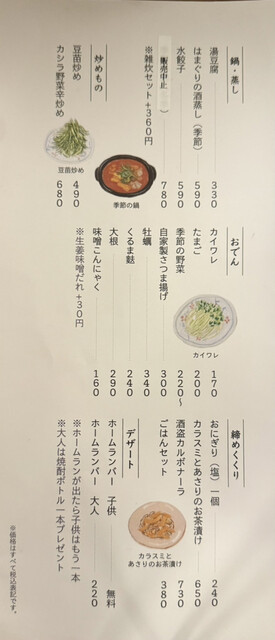 鍋・蒸し
湯豆腐 330
はまぐりの酒蒸し(季節) 590
水餃子 590
販売中止 780
※雑炊セット+360円
季節の鍋
炒めもの
豆苗炒め 490
カシラ野菜辛炒め 680
豆苗炒め
おでん
カイワレ 170
たまご 200
季節の野菜 220〜
自家製さつま揚げ 300
牡蠣 340
くるま麩 240
大根 290
味噌こんにゃく 160
※生姜味噌だれ+30円
カイワレ
締めくくり
おにぎり(塩)一個 240
カラスミとあさりのお茶漬け 650
酒盗カルボナーラ 730
ごはんセット 380
カラスミと
あさりのお茶漬け
デザート
ホームランバー 子供 無料
ホームランバー 大人 220
※ホームランが出たら子供はもう一本
※大人は焼酎ボトル一本プレゼント
※価格はすべて税込表記です。